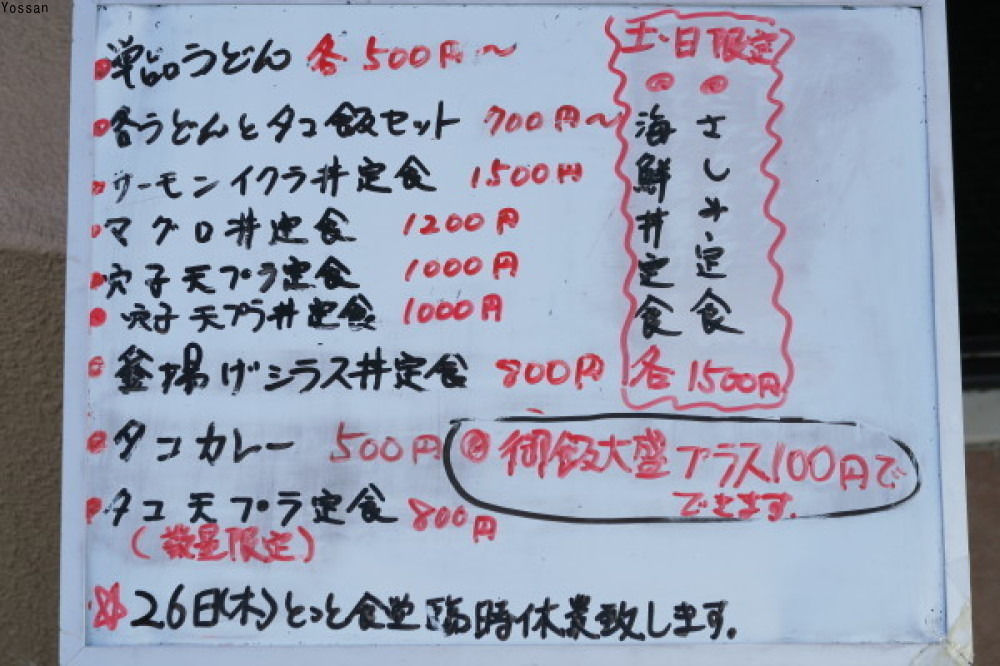 Yossan
単品うどん 各500円〜
各うどんとタコ飯セット 700円〜
サーモンイクラ丼定食 1500円
マグロ丼定食 1200円
穴子天プラ定食 1000円
穴子天プラ丼定食 1000円
釜揚げシラス丼定食 800円
タコカレー 500円
タコ天プラ定食 800円
(数量限定)
土・日限定
さしみ定食
海鮮丼定食
各1500円
御飯大盛プラス100円で
できます.
26日(木)とっと食堂臨時休業致します.